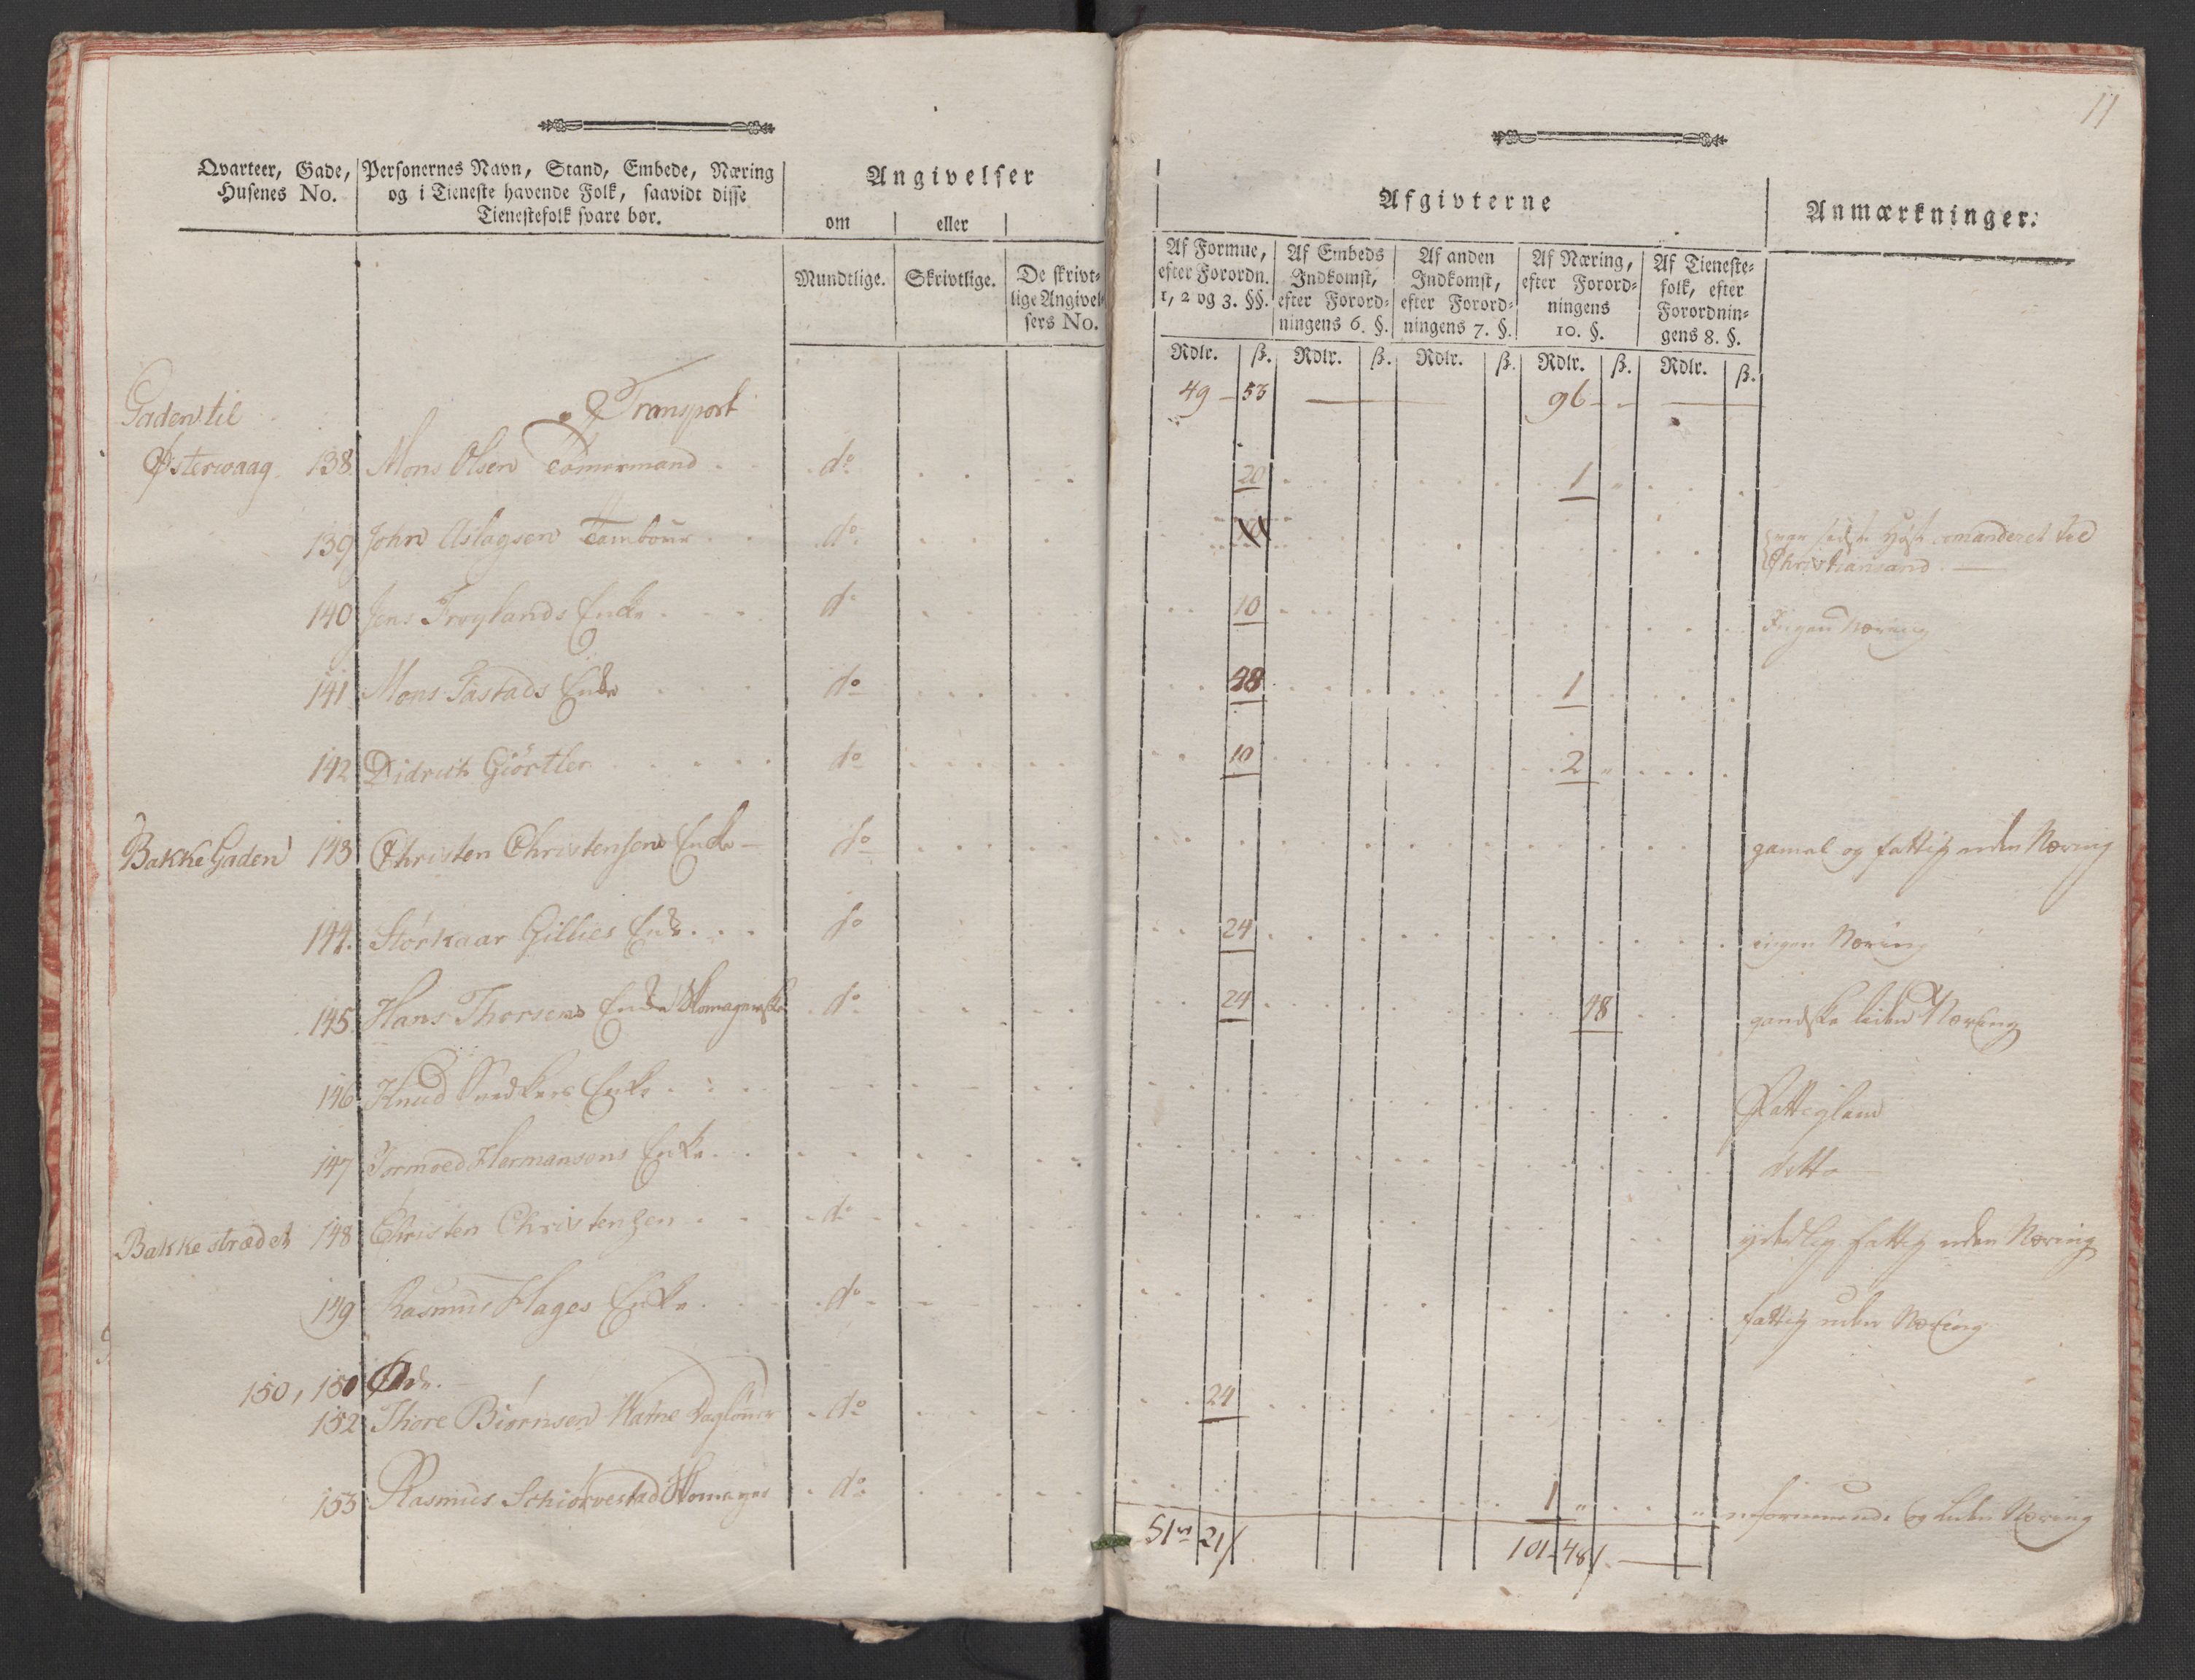 11
Qvarteer, Gade, Husenes No.
Personernes Navn, Stand, Embede, Næring og i Tieneste havende Folk, saavidt disse Tienestefolk svare bør.
Angivelser
om eller
Mundtlige. Skrivtlige. De skrivtlige Angivelsers No.
Afgivterne
Af Formue, efter Forordn. 1, 2 og 3. §§.
Af Embeds Indkomst, efter Forordningens 6. §.
Af anden Indkomst, efter Forordningens 7. §.
Af Næring, efter Forordningens 10. §.
Af Tienestefolk, efter Forordningens 8. §.
Anmærkninger.
Rdlr. ß. Rdlr. ß. Rdlr. ß. Rdlr. ß. Rdlr. ß.
Transport 49 - 53 96 -
Gaden til
Østervaag 138 Mons Olsen Tømermand do 20 1
139 John Aslagsen Tambour do comanderet til
Christiansand
140 Jens Frøylands Enke do 10 Ingen Næring
141 Mons Tastads Enke do 48 1
142 Didrich Giørtler do 10 2
Bakke Gaden 143 Christen Christensens Enke do gamal og fattig uden Næring
144. Størkaar Gillies Enke do 24 ingen Næring
145 Hans Thorsens Enke do 24 48 gandske liden Næring
146 Knud Snedkers Enke Fattiglem
147 Tormoed Hermansens Enke ditto
Bakkestrædet 148 Christen Christensen do fattig uden Næring
149 Rasmus Hages Enke do fattig uden Næring
150, 151 Øde.
152 Thore Biørnsen Dagløner do 24
153 Rasmus Schiørvestad Skomager do 1 uformuende og liden Næring
51 21 101 - 48